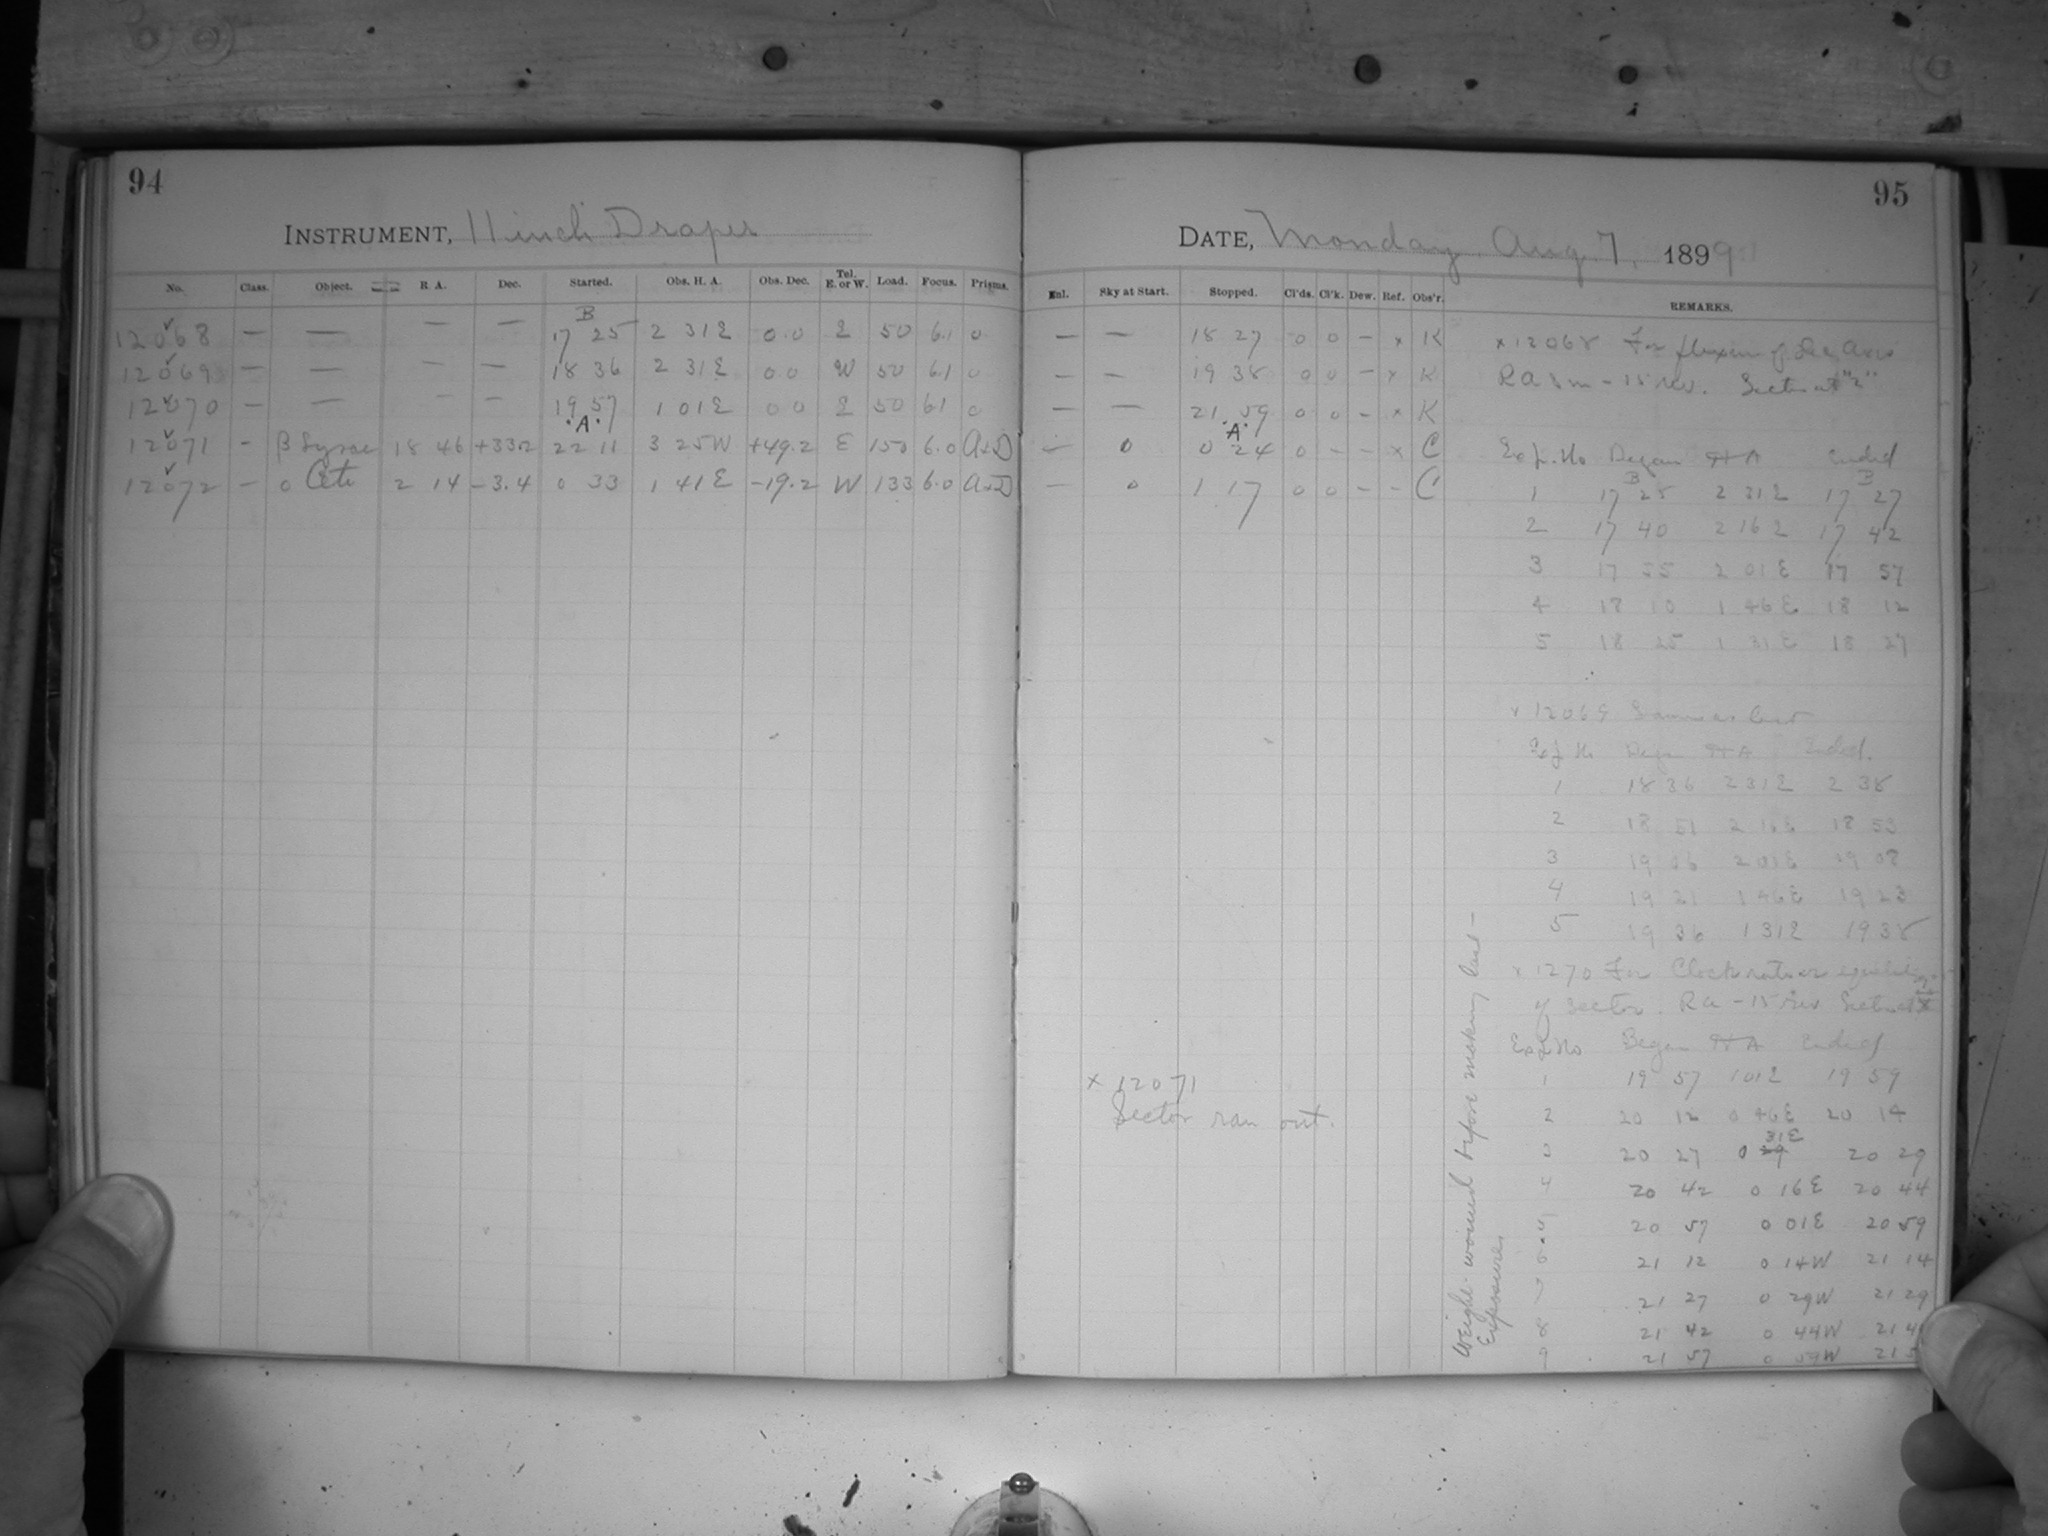 94
INSTRUMENT, 11 inch Draper
No. Class. Object. R A. Dec. Started. Obs. H. A. Obs. Dec. Tel. E. or W. Load. Focus. Prisms.
12068 — — — — B 17 25 2 31E 0.0 E 50 6.1 0
12069 — — — — 18 36 2 31E 0.0 W 50 6.1 0
12070 — — — — 19 57 1 01E 0 0 E 50 61 0
12071 - β Lyrae 18 46 +33.2 .A. 22 11 3 25W +49.2 E 150 6.0
12072 - o Ceti 2 14 -3.4 0 33 1 41E -19.2 W 133 6.0
95
DATE, Monday Aug 7, 1899
Enl. Sky at Start. Stopped. Cl'ds. Cl'k. Dew. Ref. Obs'r. REMARKS.
— — 18 27 0 0 - x K
— — 19 38 0 0 - x K
— — 21 59 0 0 - x K
— 0 A 0 24 0 - - x C
— 0 1 17 0 0 - - C
x 12068 For flexure of Dec Axis
RA 8m - 15 rev. Sector at "2"
Exp. No Began H A Ended
1 B 17 25 2 31E B 17 27
2 17 40 2 16E 17 42
3 17 55 2 01E 17 57
4 18 10 1 46E 18 12
5 18 25 1 31E 18 27
x 12069 Same as last
Exp No Began H A Ended.
1 18 36 2 31E 2 38
2 18 51 2 16E 18 53
3 19 06 2 01E 19 08
4 19 21 1 46E 19 23
5 19 36 1 31E 19 38
x 1270 For Clock rate or
of sector. Ra - 15 rev Sector at
Exp No Began H A Ended
1 19 57 1 01E 19 59
2 20 12 0 46E 20 14
3 20 27 0 31E 20 29
4 20 42 0 16E 20 44
20 57 0 01E 20 59
6 21 12 0 14W 21 14
7 21 27 0 29W 21 29
8 21 42 0 44W 21 4
9 21 57 0 59W 21 5
x 12071
Sector ran out.
Weight wound before making last -
Exposures